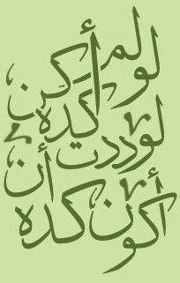 لو لم أكن كده
لوددت أن
أكون كده